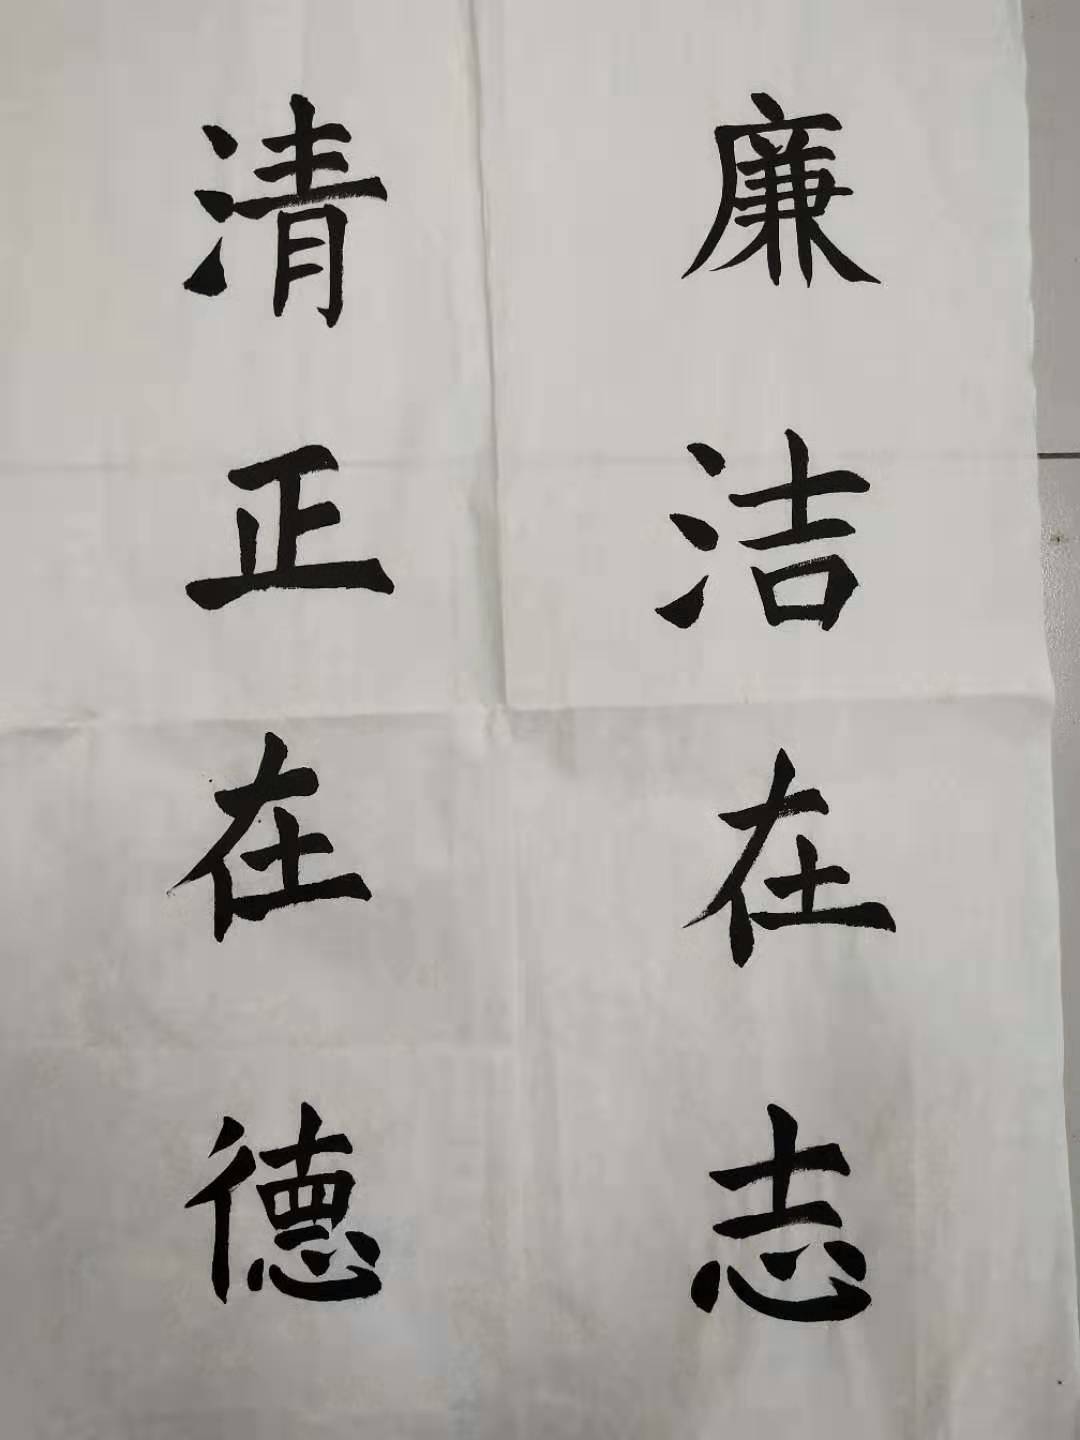 廉洁在志
清正在德